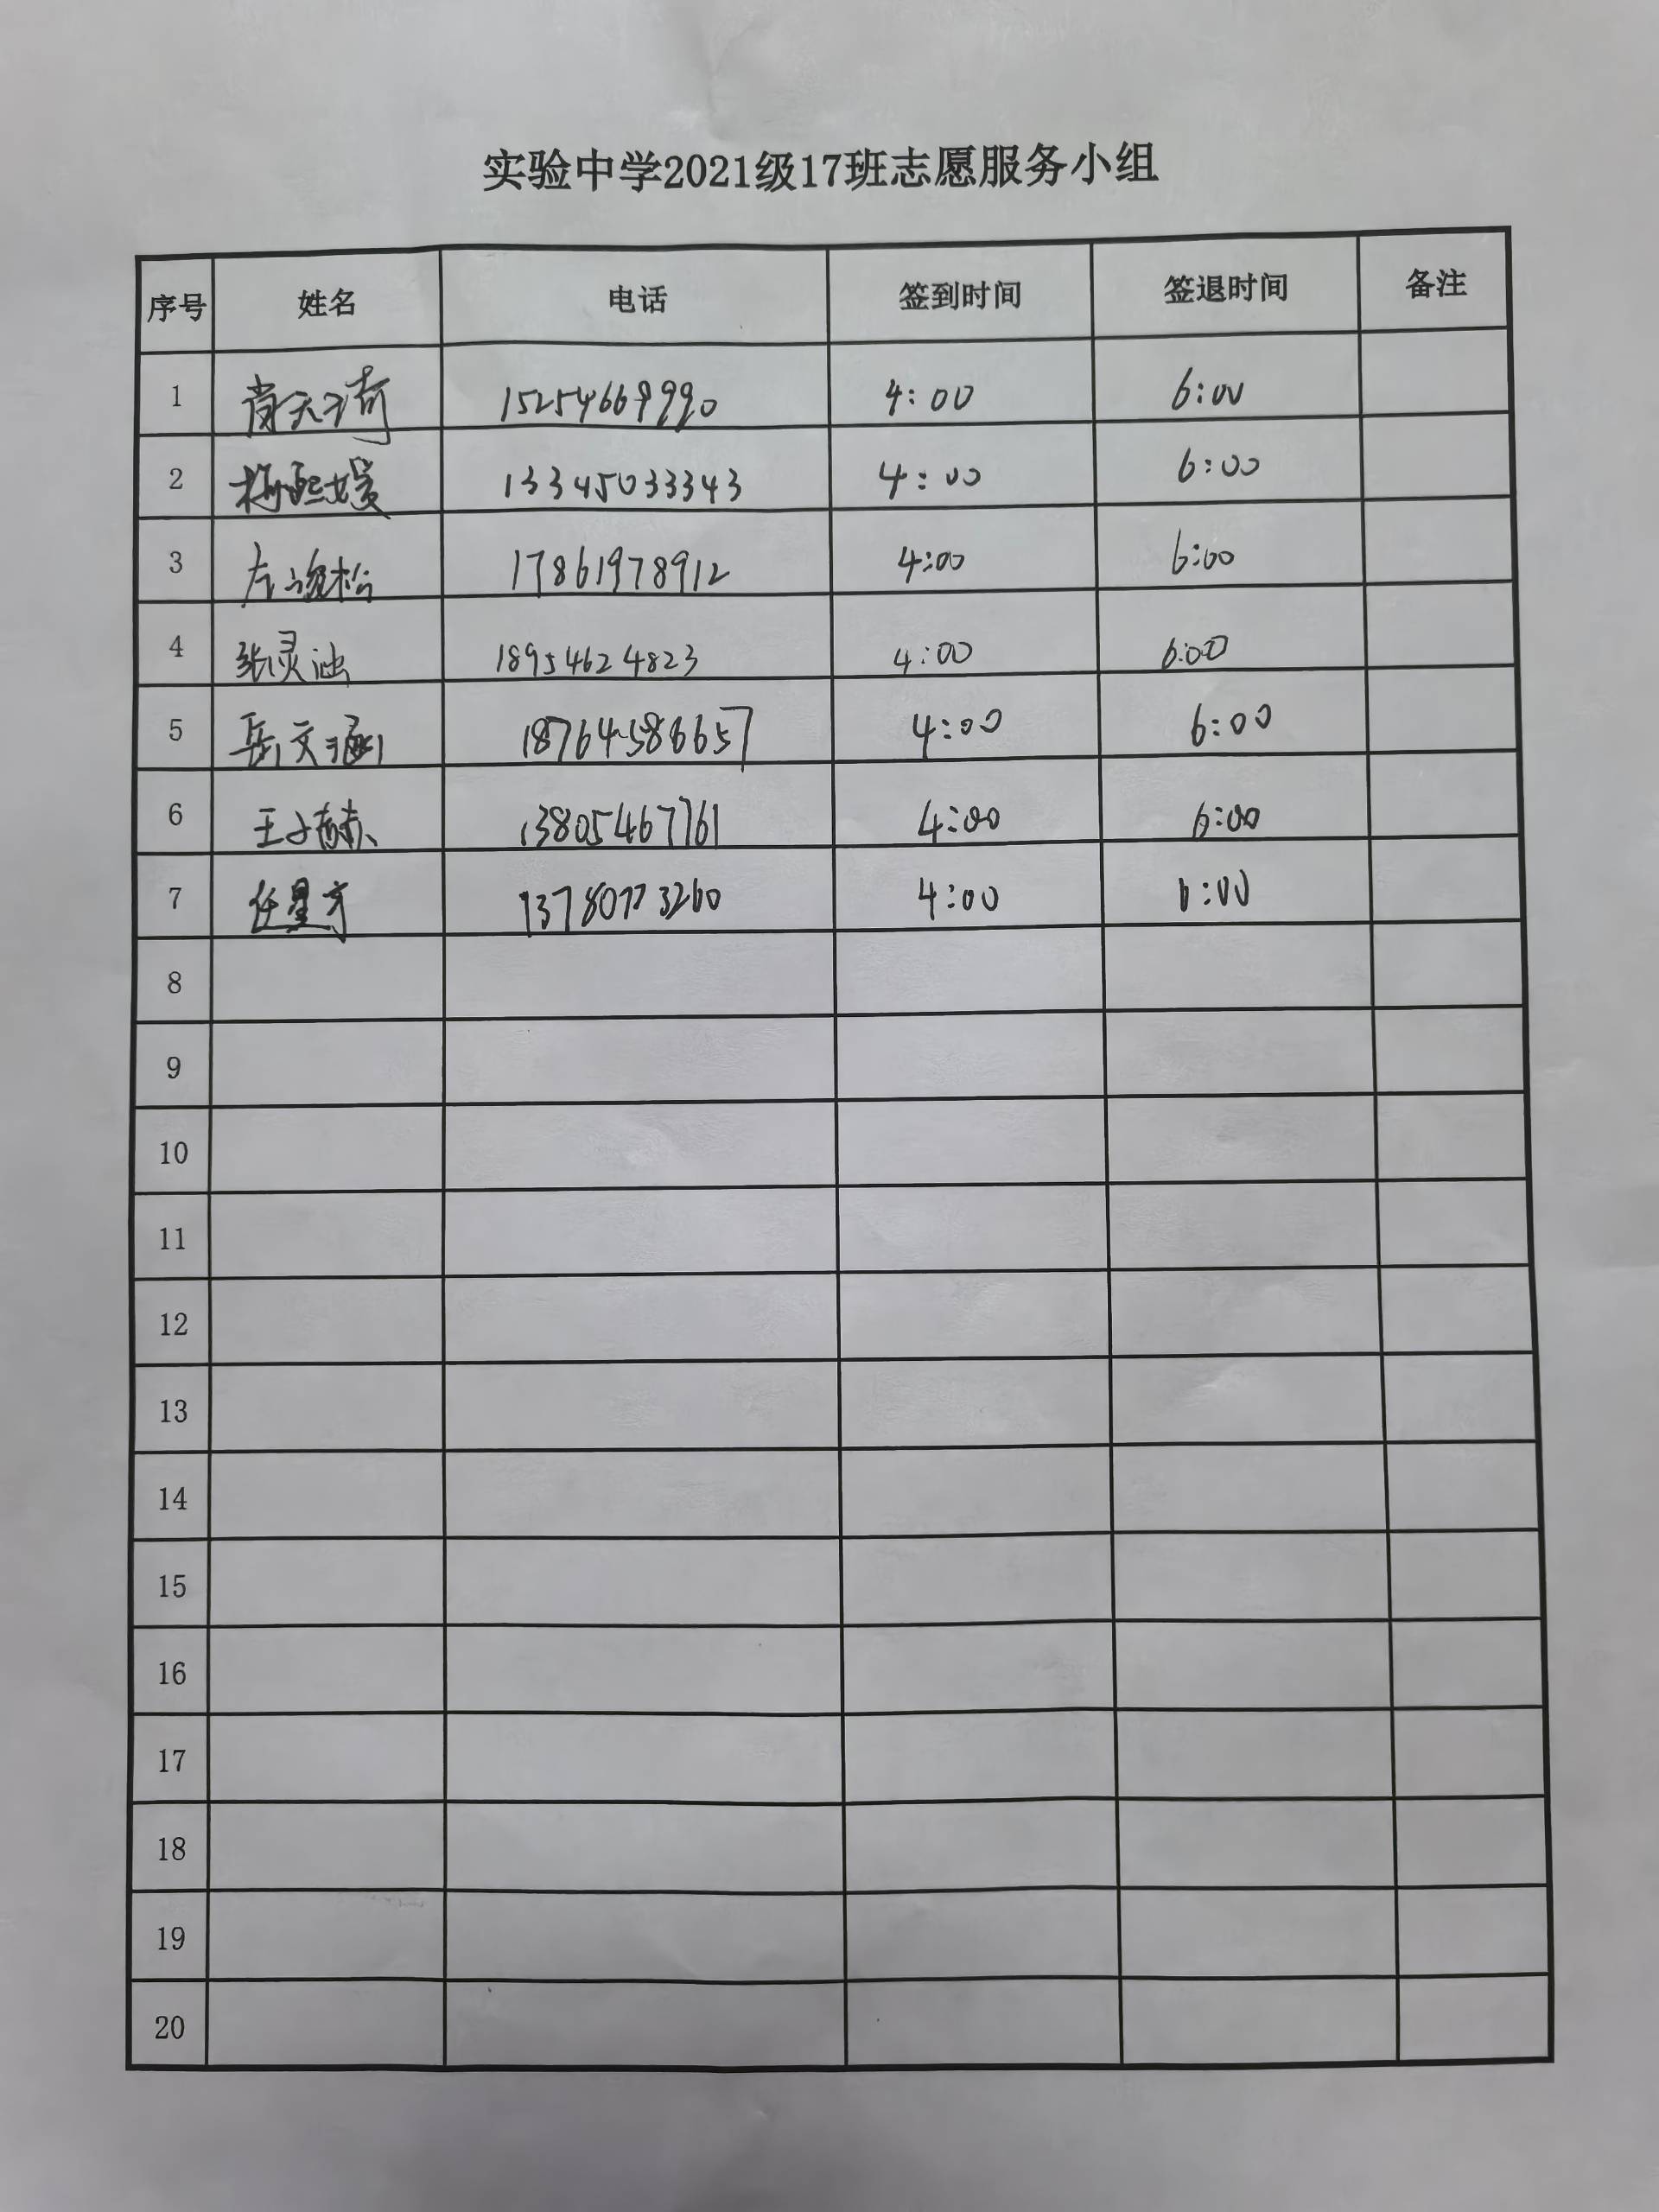 实验中学2021级17班志愿服务小组
序号 姓名 电话 签到时间 签退时间 备注
1 肖天琦 15254669990 4:00 6:00
2 杨熙媛 13345033343 4:00 6:00
3 左 松 17861978912 4:00 6:00
4 张灵 18954624823 4:00 6:00
5 岳文涵 18764586657 4:00 6:00
6 王子赫 13805467761 4:00 6:00
7 任星宇 4:00 6:00
8
9
10
11
12
13
14
15
16
17
18
19
20